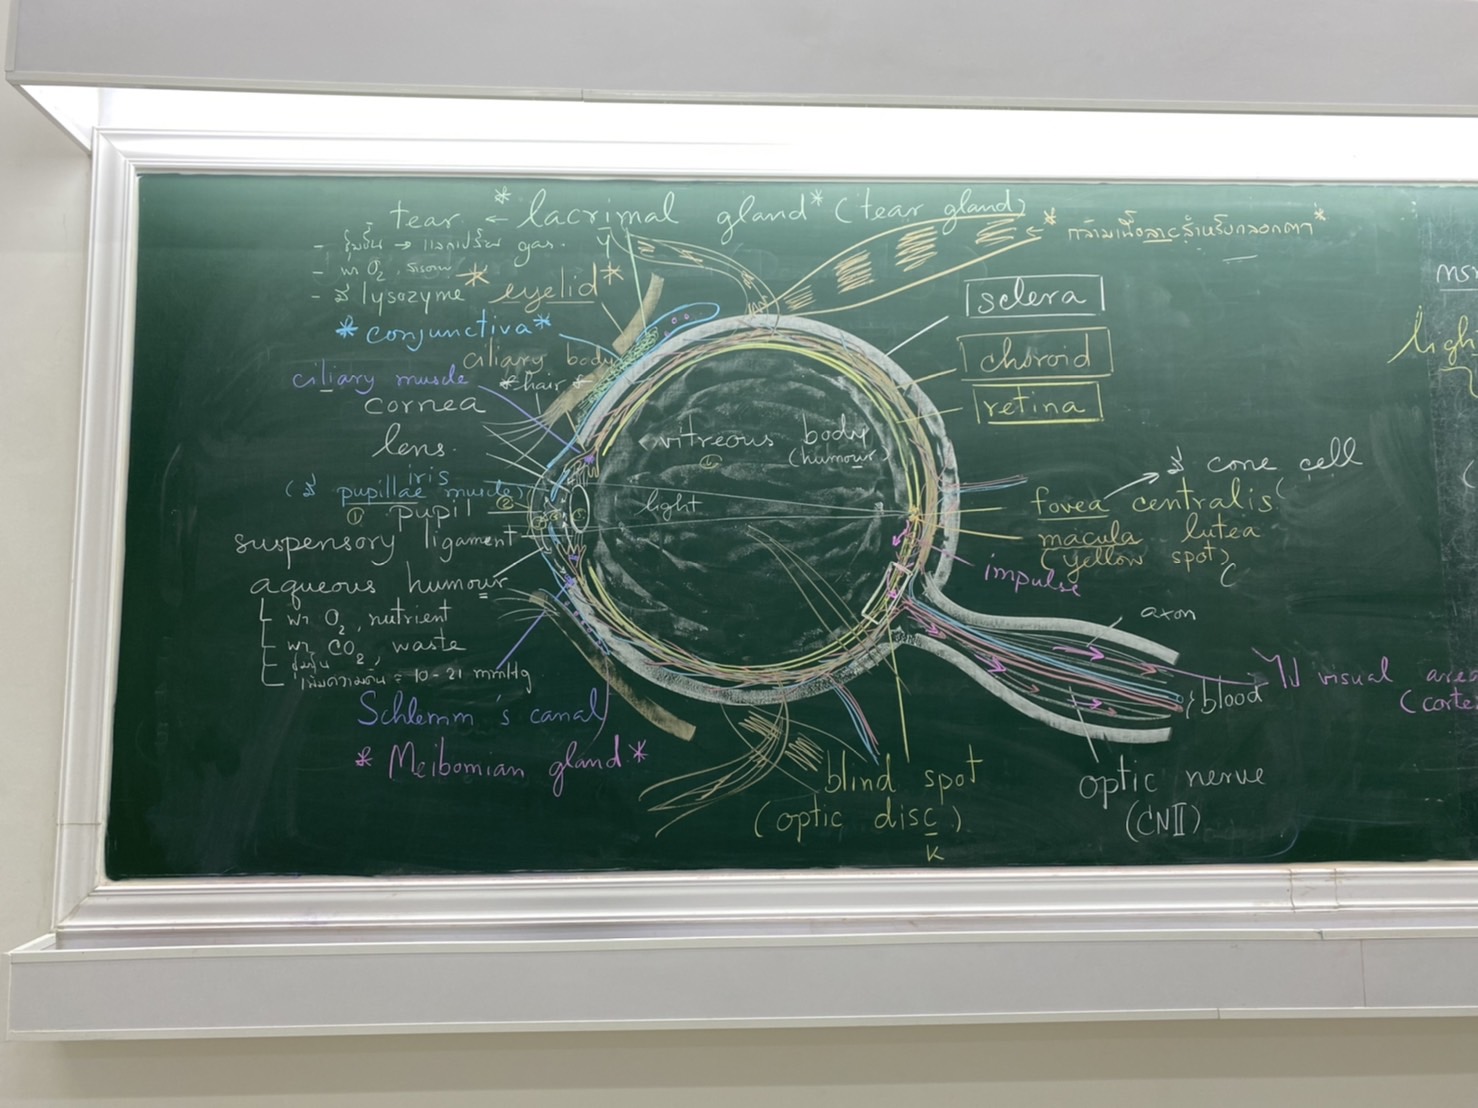 tear ← *lacrimal gland* (tear gland)
- ชุ่มชื้น → แลกเปลี่ยน gas.
- พา O2
- มี lysozyme
*eyelid*
*กล้ามเนื้อลายสำหรับกลอกตา*
*conjunctiva*
ciliary body
ciliary muscle
*hair*
cornea
lens
iris
(มี pupillae muscle) ②
① pupil
suspensory ligament
aqueous humour
พา O2, nutrient
พา CO2, waste
เพิ่มความดัน = 10-21 mmHg
Schlemm's canal
*Meibomian gland*
vitreous body
(humour)
light
sclera
choroid
retina
มี cone cell
fovea centralis
macula lutea
(yellow spot)
impulse
axon
ไป visual area
blood
optic nerve
(CNII)
blind spot
(optic disc)
k